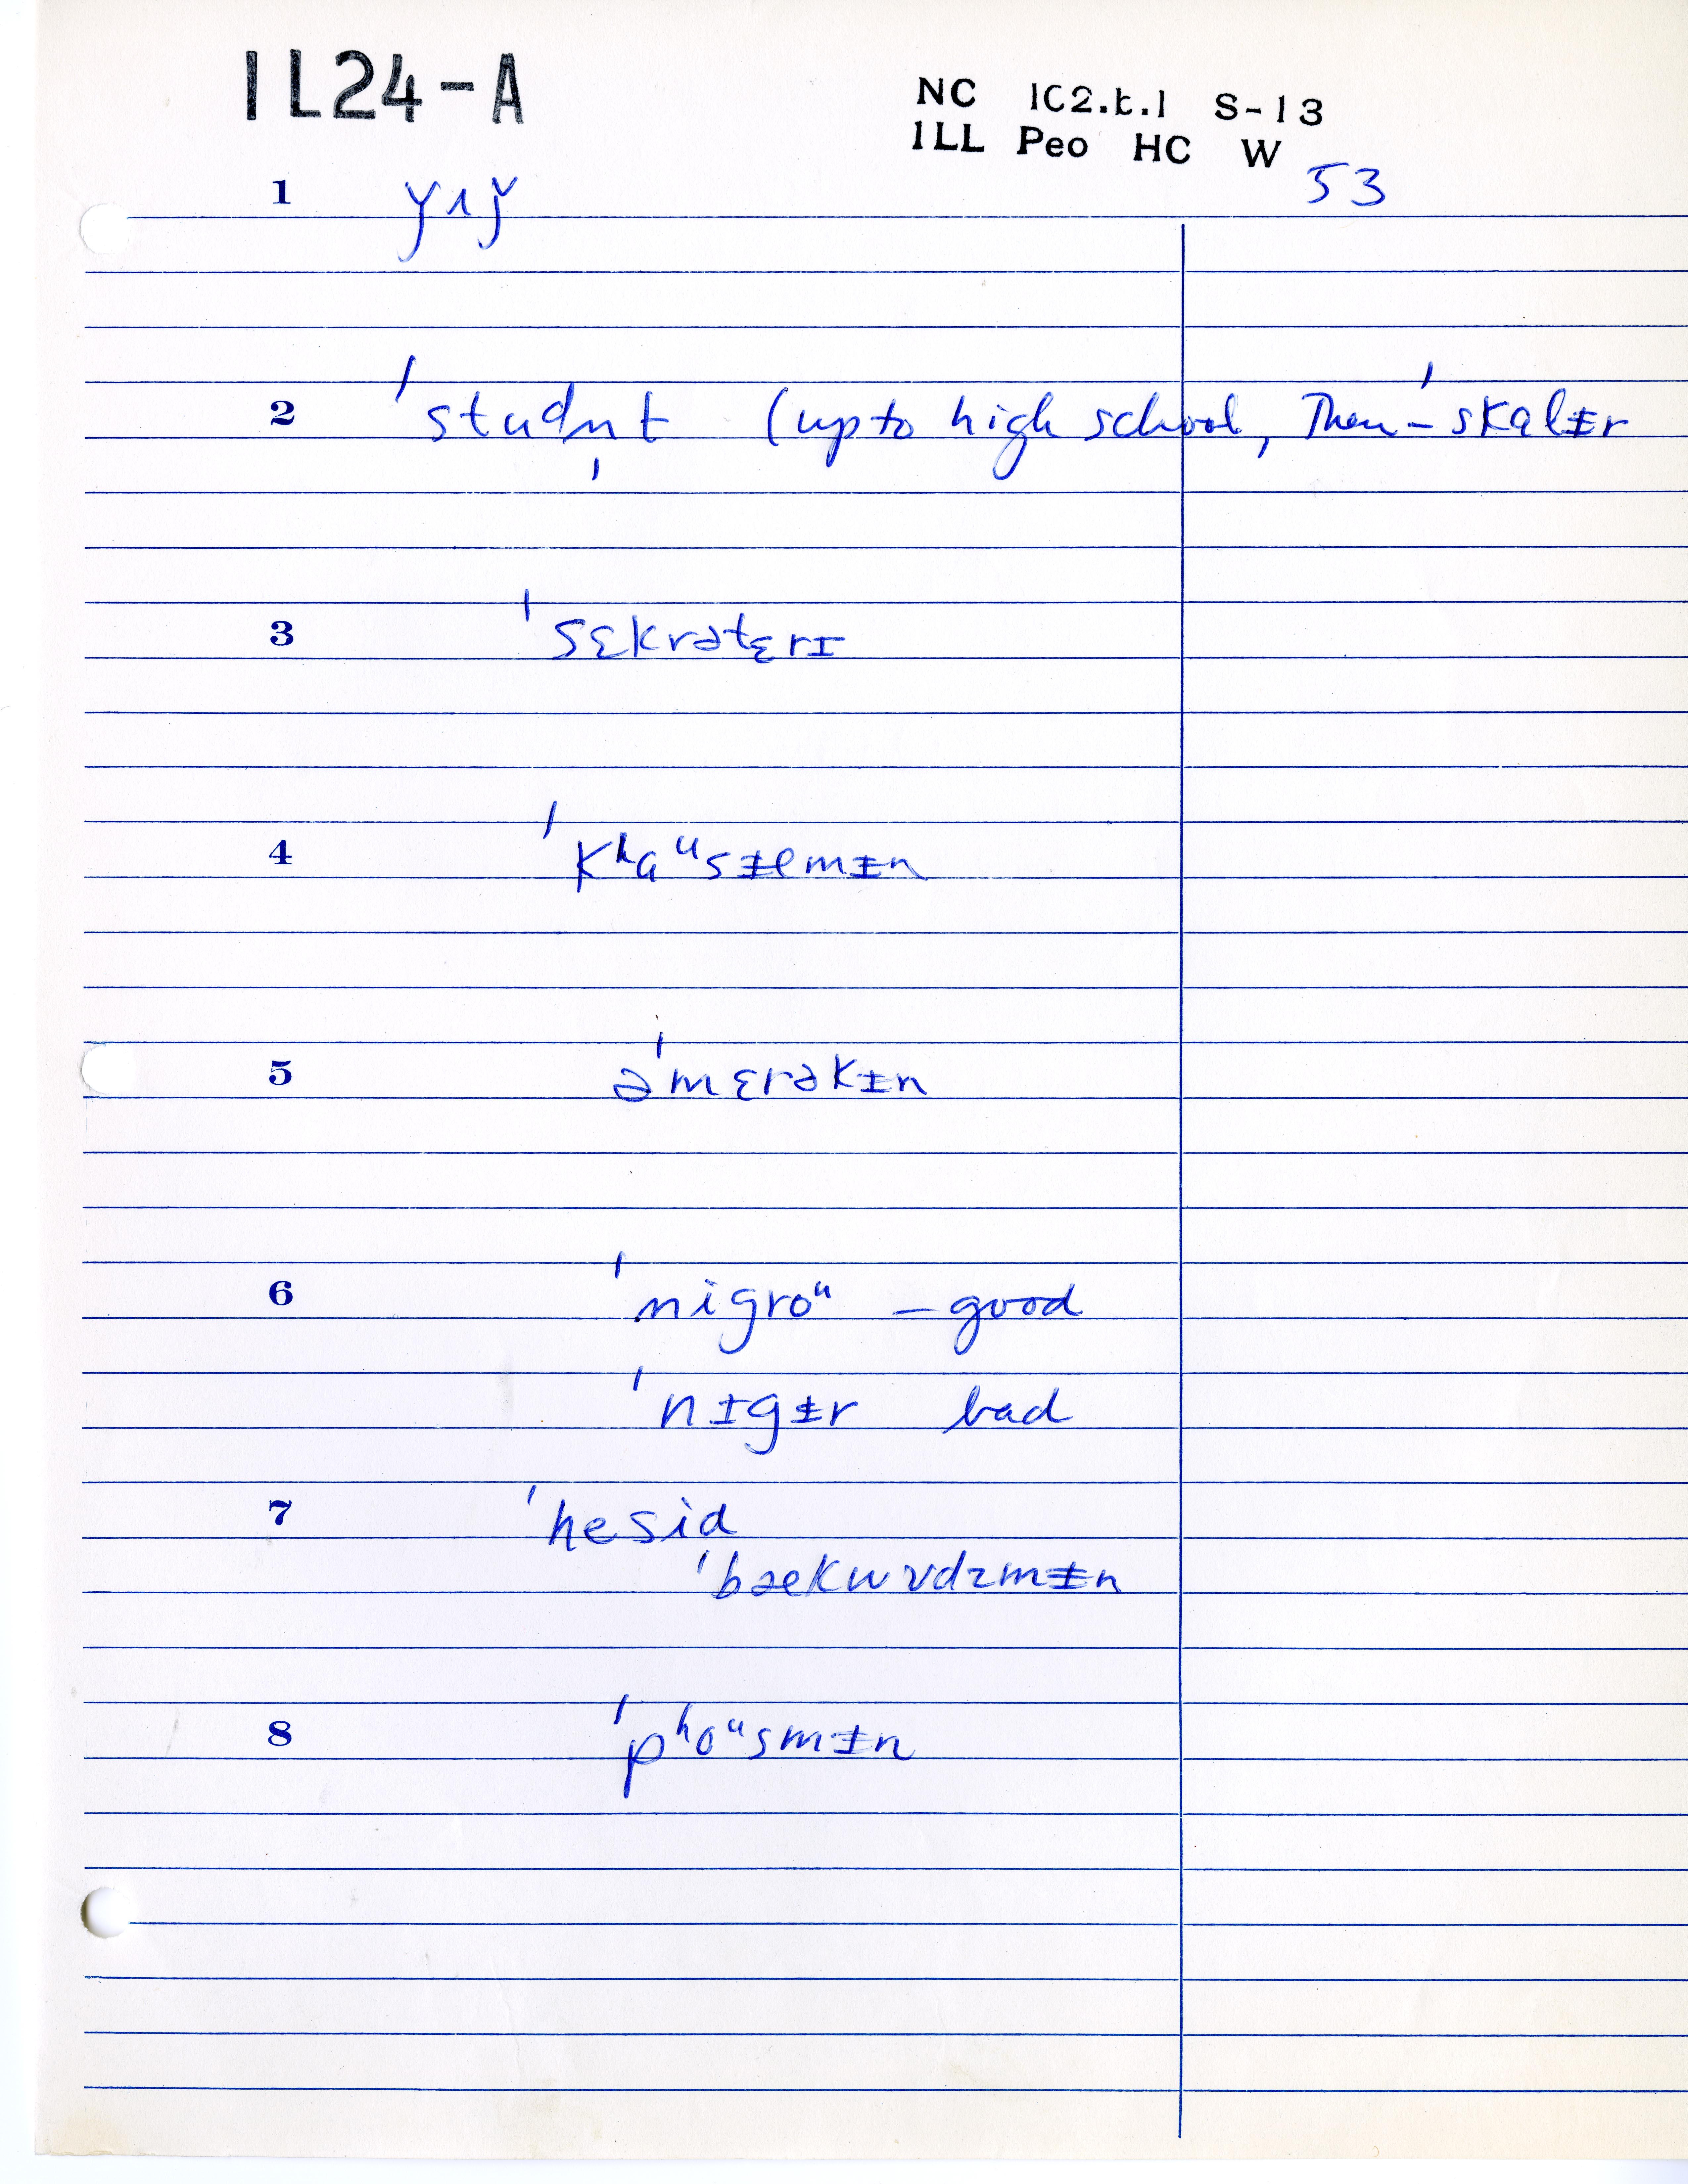 1L24-A
NC 1C2.t.1 S-13
ILL Peo HC W
53
1 ǰʌǰ
2 ˈstudn̩t (up to high school, Then – ˈskalɨr
3 ˈsɛkrətɛrɪ
4 ˈkʰaᵘsɨlmɨn
5 əˈmɛrəkɨn
6 ˈnigroᵘ – good
ˈnɪgɨr bad
7 ˈhesid
ˈbækwʊdzmɨn
8 ˈpʰoᵘsmɨn